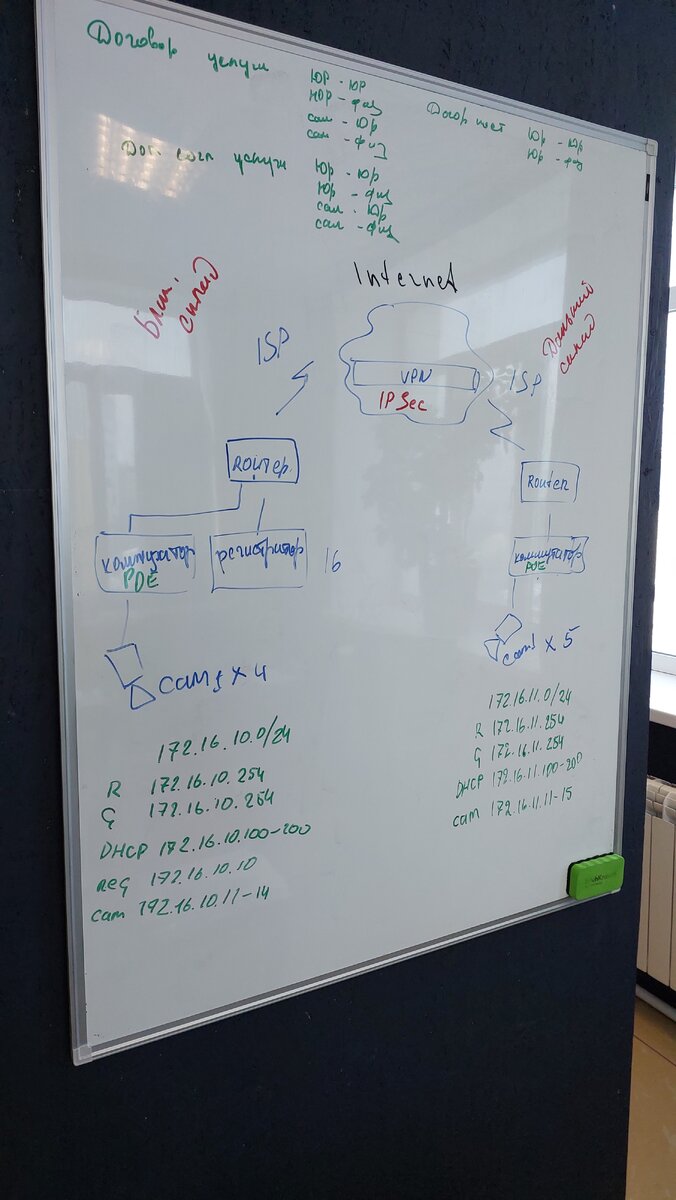 Договор услуг
Юр - Юр
Юр - физ
сам - Юр
сам - физ
Догор пост
Юр - Юр
Юр - физ
Доп. согл услуг
Юр - Юр
Юр - физ
сам - Юр
сам - физ
Internet
Ближ.
склад
Дальний
склад
ISP
VPN
IP Sec
ISP
Роутер
Router
коммутатор
POE
регистратор
16
коммутатор
POE
cams x 4
cams x 5
172.16.10.0/24
R 172.16.10.254
G 172.16.10.254
DHCP 172.16.10.100-200
reg 172.16.10.10
cam 192.16.10.11-14
172.16.11.0/24
R 172.16.11.254
G 172.16.11.254
DHCP 172.16.11.100-200
cam 172.16.11.11-15